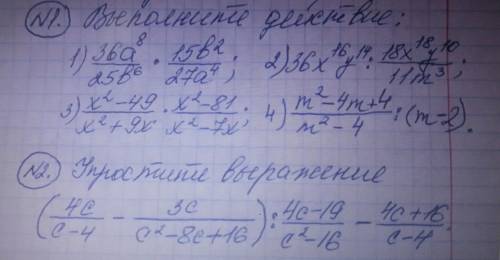 №1. Выполните действие:
1) 36a⁸/25b⁶ · 15b²/27a⁴; 2) 36x¹⁶y¹⁴ : 18x¹⁸y¹⁰/11m³;
3) x²-49/x²+9x · x²-81/x²-7x; 4) m²-4m+4/m²-4 : (m-2).
№2. Упростите выражение
(4c/c-4 - 3c/c²-8c+16) : 4c-19/c²-16 - 4c+16/c-4.